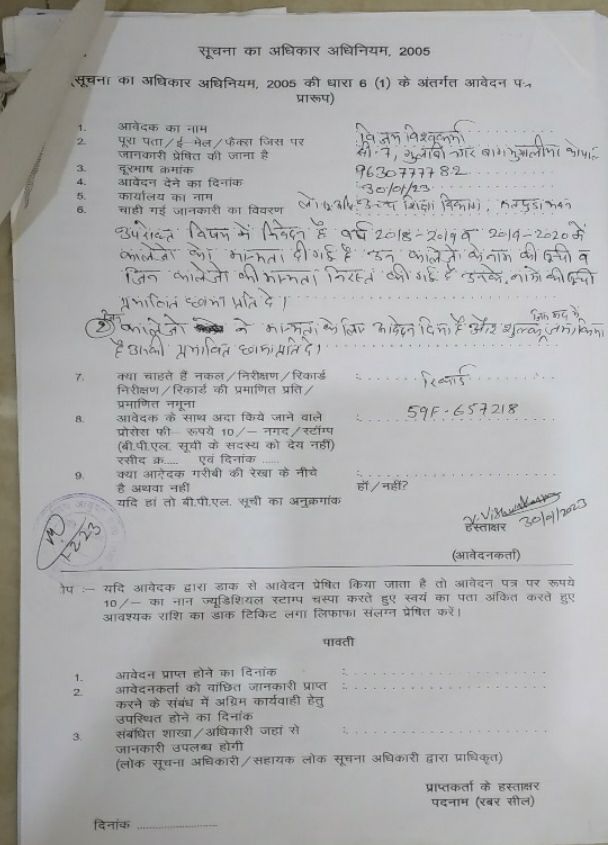 सूचना का अधिकार अधिनियम, 2005
(सूचना का अधिकार अधिनियम, 2005 की धारा 6 (1) के अंतर्गत आवेदन पत्र
प्रारूप)
1. आवेदक का नाम
2. पूरा पता/ई-मेल/फैक्स जिस पर जानकारी प्रेषित की जाना है सी-7, गुलाबी नगर
3. दूरभाष क्रमांक 9630777782
4. आवेदन देने का दिनांक 30/01/23
5. कार्यालय का नाम उच्च शिक्षा विभाग, सतपुड़ा भवन
6. चाही गई जानकारी का विवरण
उपरोक्त विषय में निवेदन है वर्ष 2018-2019 व 2019-2020 में
कालेजो को मान्यता दी गई है उन कालेजो के नाम की सूची व
जिन कालेजो की मान्यता निरस्त की गई है उनके नाम की सूची
प्रमाणित छाया प्रति दे।
(2) जिन कालेजो ने मान्यता के लिए आवेदन दिया है और शुल्क जिस मद में जमा किया
है उसकी प्रमाणित छायाप्रति दे।
7. क्या चाहते हैं नकल/निरीक्षण/रिकार्ड : रिकार्ड
निरीक्षण/रिकार्ड की प्रमाणित प्रति/
प्रमाणित नमूना
8. आवेदक के साथ अदा किये जाने वाले : 59F-657218
प्रोसेस फी- रूपये 10/- नगद/स्टॉम्प
(बी.पी.एल. सूची के सदस्य को देय नहीं)
रसीद क्र..... एवं दिनांक ......
9. क्या आवेदक गरीबी की रेखा के नीचे
है अथवा नहीं हॉ/नहीं?
यदि हां तो बी.पी.एल. सूची का अनुक्रमांक
1-2-23
V. Vishwakarma
हस्ताक्षर 30/01/2023
(आवेदनकर्ता)
टीप :- यदि आवेदक द्वारा डाक से आवेदन प्रेषित किया जाता है तो आवेदन पत्र पर रूपये
10/- का नान ज्यूडिशियल स्टाम्प चस्पा करते हुए स्वयं का पता अंकित करते हुए
आवश्यक राशि का डाक टिकिट लगा लिफाफा संलग्न प्रेषित करें।
पावती
1. आवेदन प्राप्त होने का दिनांक :
2. आवेदनकर्ता को वांछित जानकारी प्राप्त :
करने के संबंध में अग्रिम कार्यवाही हेतु
उपस्थित होने का दिनांक
3. संबंधित शाखा/अधिकारी जहां से :
जानकारी उपलब्ध होगी
(लोक सूचना अधिकारी/सहायक लोक सूचना अधिकारी द्वारा प्राधिकृत)
प्राप्तकर्ता के हस्ताक्षर
पदनाम (रबर सील)
दिनांक ........................